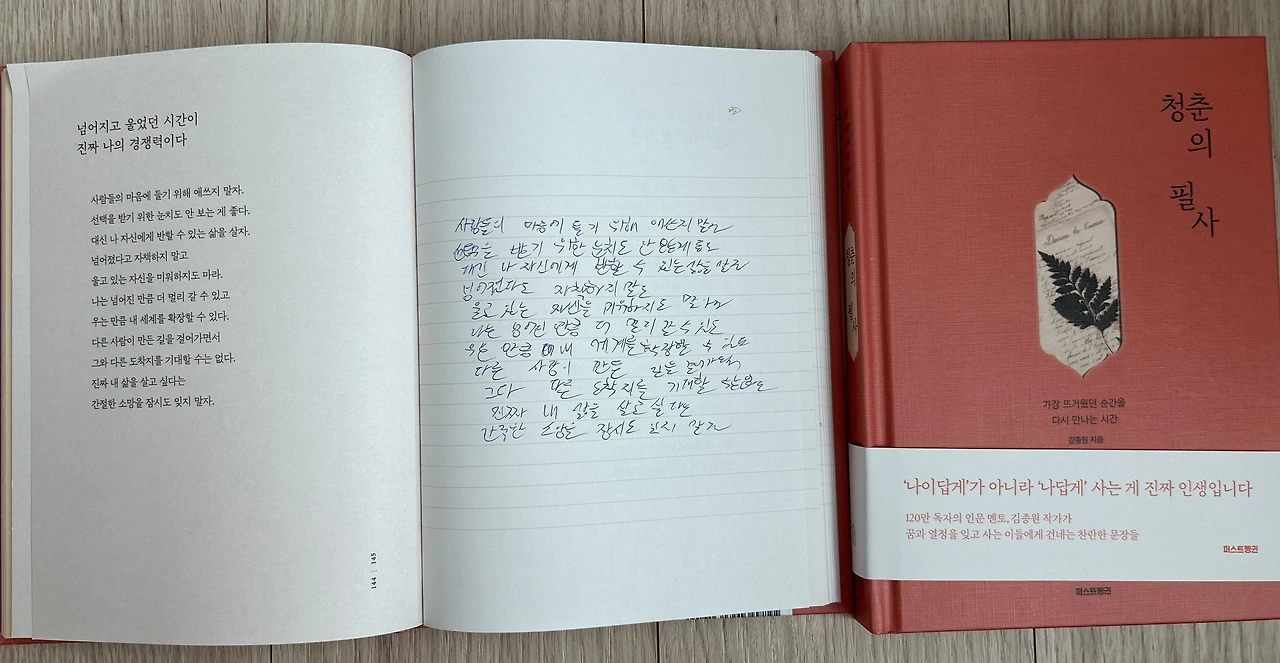 넘어지고 울었던 시간이
진짜 나의 경쟁력이다
사람들의 마음에 들기 위해 애쓰지 말자.
선택을 받기 위한 눈치도 안 보는 게 좋다.
대신 나 자신에게 반할 수 있는 삶을 살자.
넘어졌다고 자책하지 말고
울고 있는 자신을 미워하지도 마라.
나는 넘어진 만큼 더 멀리 갈 수 있고
우는 만큼 내 세계를 확장할 수 있다.
다른 사람이 만든 길을 걸어가면서
그와 다른 도착지를 기대할 수는 없다.
진짜 내 삶을 살고 싶다는
간절한 소망을 잠시도 잊지 말자.
144 | 145
사람들의 마음에 들기 위해 애쓰지 말자
받기 위한 눈치도 안
대신 나 자신에게 반할 수 있는 삶을 살자
넘어졌다고 자책하지 말고
울고 있는 자신을 미워하지도 마라
나는 넘어진 만큼 더 멀리 갈 수 있고
우는 만큼 내 세계를 확장할 수 있다
다른 사람이 만든 길을
그와 다른 도착지를 기대할
진짜 내 삶을 살고 싶다는
간절한 소망을 잠시도 잊지 말자
청춘
의
필
사
가장 뜨거웠던 순간을
다시 만나는 시간
김종원 지음
‘나이답게’가 아니라 ‘나답게’ 사는 게 진짜 인생입니다
120만 독자의 인문 멘토, 김종원 작가가
꿈과 열정을 잊고 사는 이들에게 건네는 찬란한 문장들
퍼스트펭귄
퍼스트펭귄
청춘의 필사